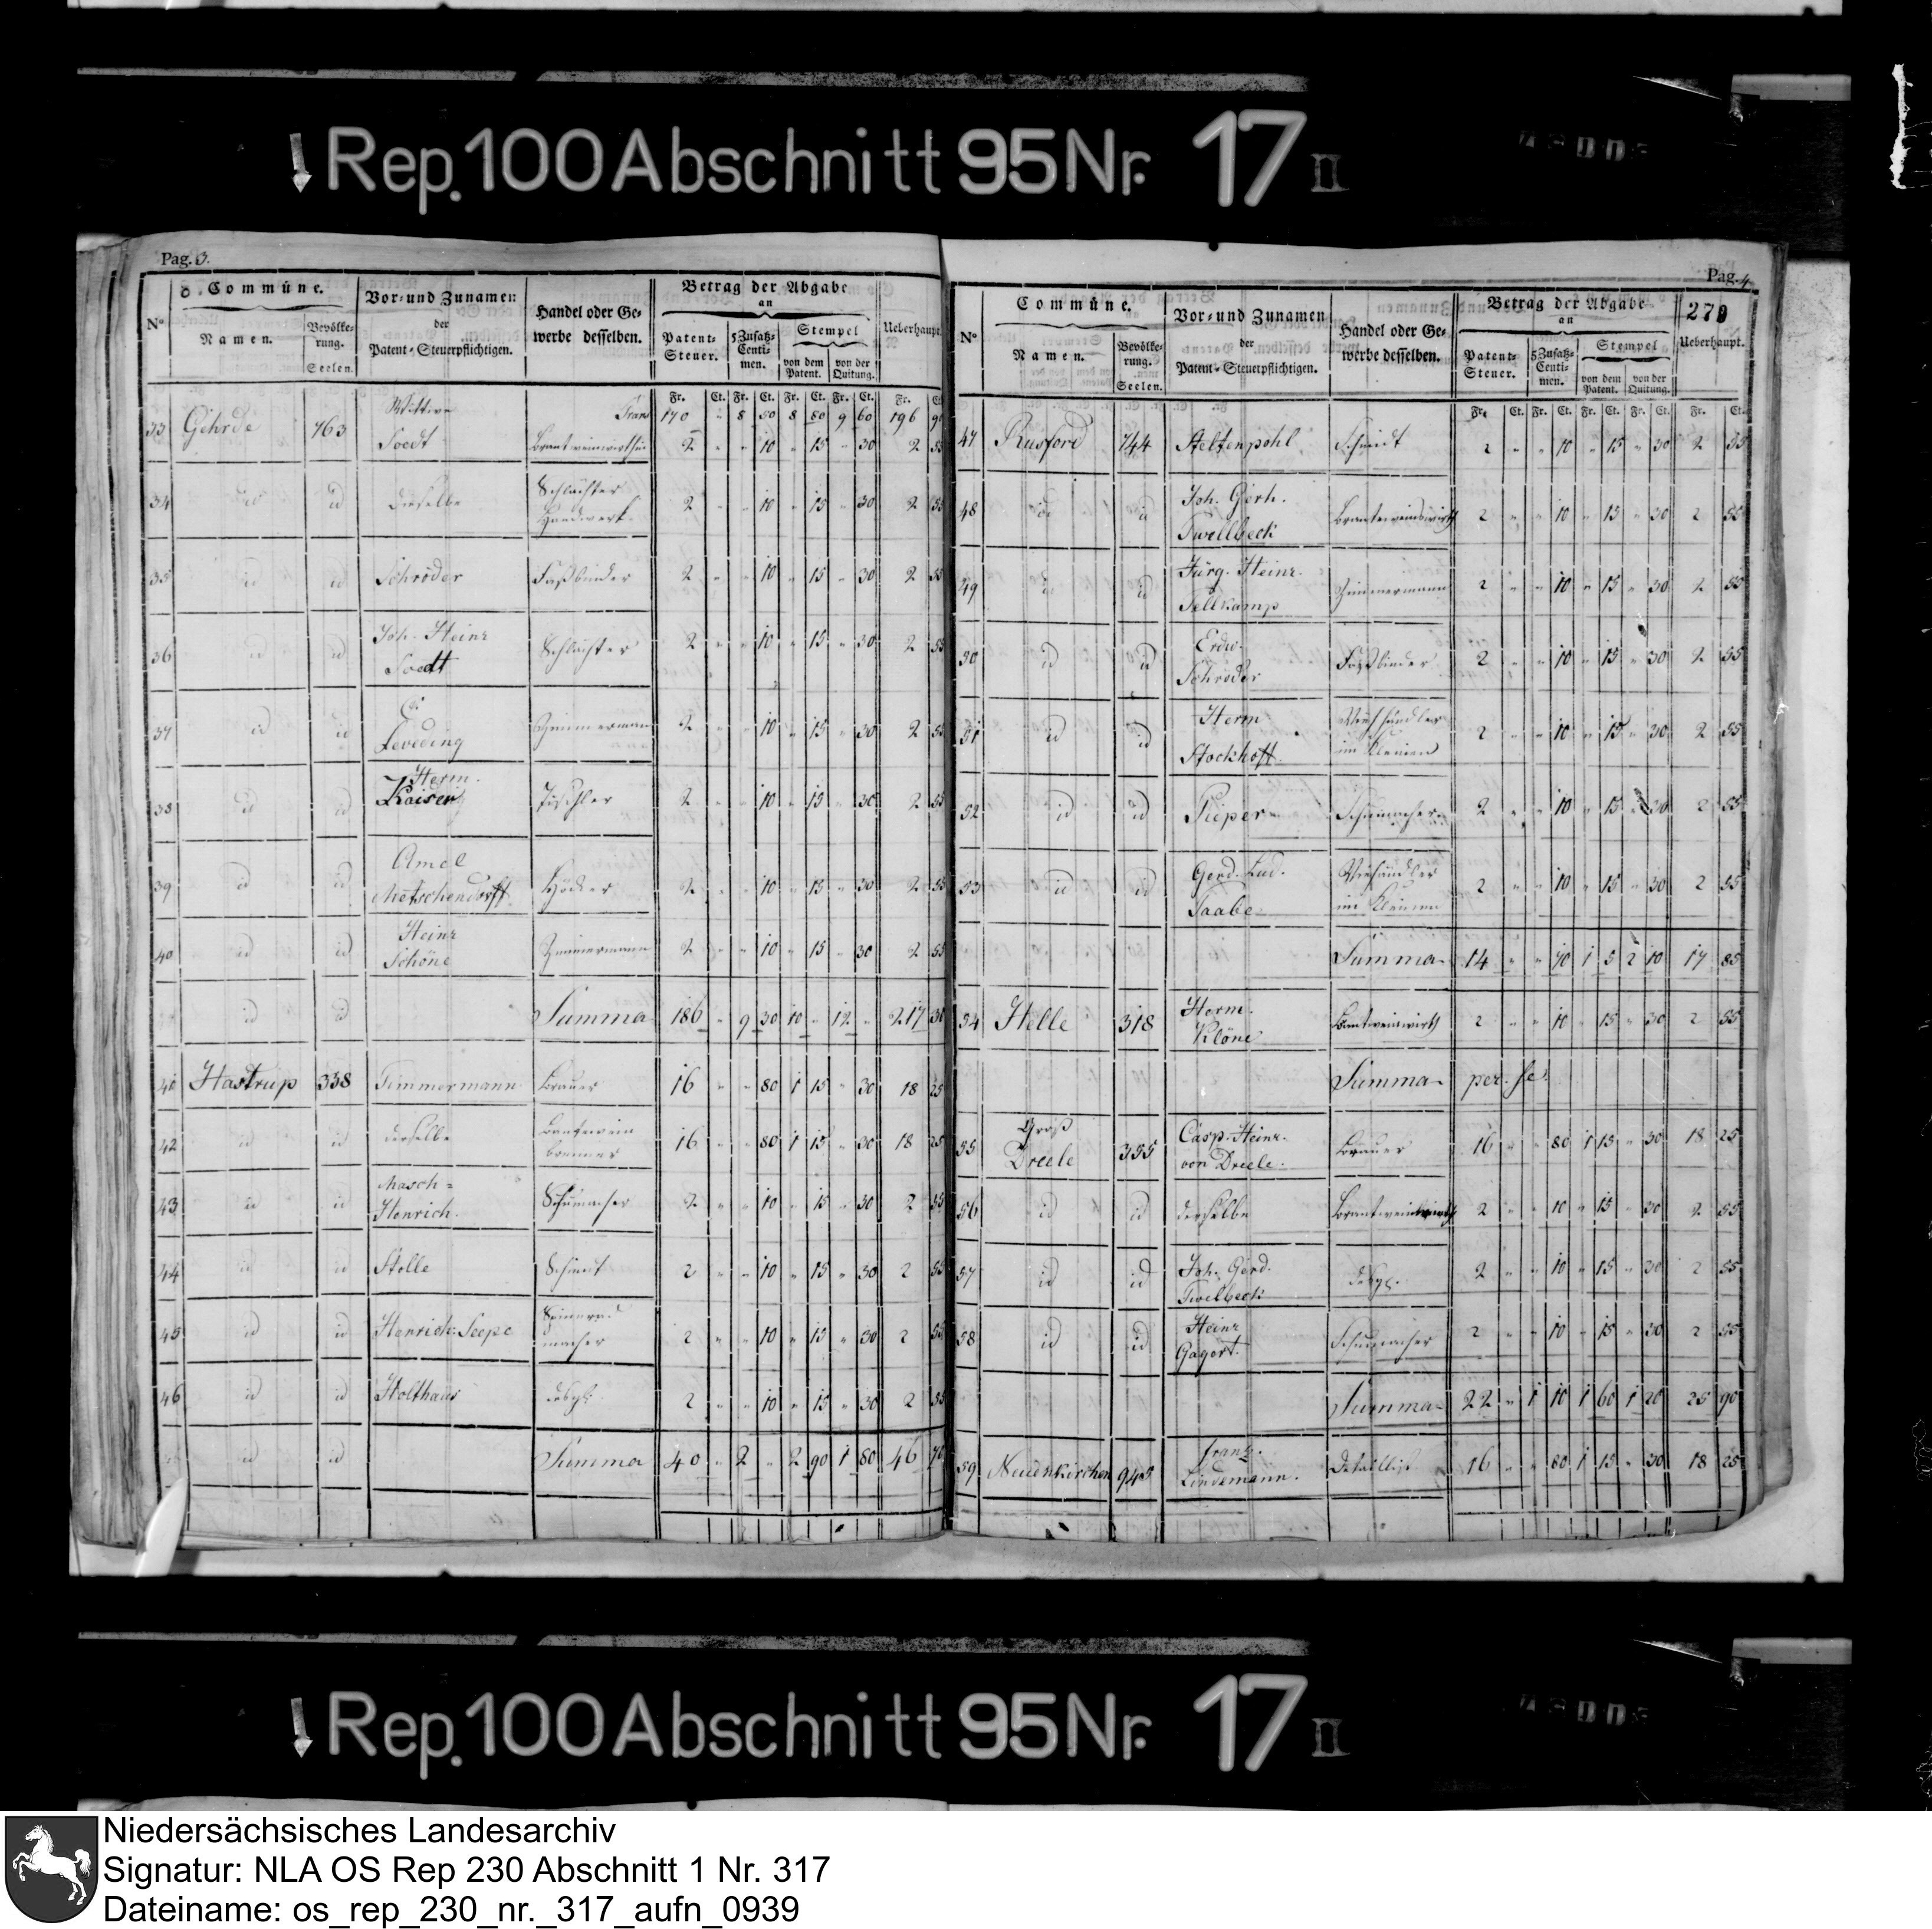 Rep. 100 Abschnitt 95 Nr. 17 II
Pag. 3.
No
Commüne.
Namen.
Bevölke-
rung.
Seelen.
Vor- und Zunamen
der
Patent-Steuerpflichtigen.
Handel oder Ge-
werbe desselben.
Betrag der Abgabe
an
Patent-
Steuer.
5 Zusatz-
Centi-
men.
Stempel
von dem
Patent.
von der
Quitung.
Ueberhaupt.
Fr. Ct. Fr. Ct. Fr. Ct. Fr. Ct. Fr. Ct.
Trans 170 " 8 50 8 80 9 60 196 90
33 Gehrde 763 Wittwe
Soedt Brantweinwirthin 2 " " 10 " 15 " 30 2 55
34 id id dieselbe Schlachter
Handwerk 2 " " 10 " 15 " 30 2 55
35 id id Schröder Faßbinder 2 " " 10 " 15 " 30 2 55
36 id id Joh. Heinr
Soedt Schlachter 2 " " 10 " 15 " 30 2 55
37 id id
Leveding Zimmermann 2 " " 10 " 15 " 30 2 55
38 id id Herm.
Kaiser Tischler 2 " " 10 " 15 " 30 2 55
39 id id Amel
Metschendorff Höcker 2 " " 10 " 15 " 30 2 55
40 id id Heinr
Schöne Zimmermann 2 " " 10 " 15 " 30 2 55
id id Summa 186 " 9 30 10 " 12 " 217 30
41 Hastrup 338 Timmermann Brauer 16 " " 80 1 15 " 30 18 25
42 id id derselbe Brantewein
brenner 16 " " 80 1 15 " 30 18 25
43 id id Masch=
Henrich. Schumacher 2 " " 10 " 15 " 30 2 55
44 id id Stolle Schmit 2 " " 10 " 15 " 30 2 55
45 id id Henrich Seepe Spinnrad
macher 2 " " 10 " 15 " 30 2 55
46 id id Holthaus desgl. 2 " " 10 " 15 " 30 2 55
id id Summa 40 " 2 " 2 90 1 80 46 70
Pag. 4
270
No
Commüne.
Namen.
Bevölke-
rung.
Seelen.
Vor- und Zunamen
der
Patent-Steuerpflichtigen.
Handel oder Ge-
werbe desselben.
Betrag der Abgabe
an
Patent-
Steuer.
5 Zusatz-
Centi-
men.
Stempel
von dem
Patent.
von der
Quitung.
Ueberhaupt.
Fr. Ct. Fr. Ct. Fr. Ct. Fr. Ct. Fr. Ct.
47 Rusford 744 Steltenpohl Schmidt 2 " " 10 " 15 " 30 2 55
48 id id Joh. Gerh.
Twellbeck Branteweinswirth 2 " " 10 " 15 " 30 2 55
49 id id Jürg. Heinr.
Tellkamp Zimmermann 2 " " 10 " 15 " 30 2 55
50 id id Erdw.
Schröder Faßbinder 2 " " 10 " 15 " 30 2 55
51 id id Herm
Stockhoff Viehhändler
im Kleinen 2 " " 10 " 15 " 30 2 55
52 id id Pieper Schumacher 2 " " 10 " 15 " 30 2 55
53 id id Gerd. Lud.
Taabe Viehändler
im Kleinen 2 " " 10 " 15 " 30 2 55
Summa 14 " " 70 1 5 2 10 17 85
54 Helle 318 Herm.
Klöne Brantweinwirth 2 " " 10 " 15 " 30 2 55
Summa per se.
55 Groß
Dreele 355 Casp. Heinr.
von Dreele. Brauer 16 " " 80 1 15 " 30 18 25
56 id id derselbe Brantweinwirth 2 " " 10 " 15 " 30 2 55
57 id id Joh. Gerd.
Twelbeck desgl. 2 " " 10 " 15 " 30 2 55
58 id id Heinr
Gagert. Schumacher 2 " " 10 " 15 " 30 2 55
Summa 22 " 1 10 1 60 1 20 25 90
59 Neuenkirchen 945 Franz.
Lindemann. Detaillist 16 " " 80 1 15 " 30 18 25
Rep. 100 Abschnitt 95 Nr. 17 II
Niedersächsisches Landesarchiv
Signatur: NLA OS Rep 230 Abschnitt 1 Nr. 317
Dateiname: os_rep_230_nr._317_aufn_0939